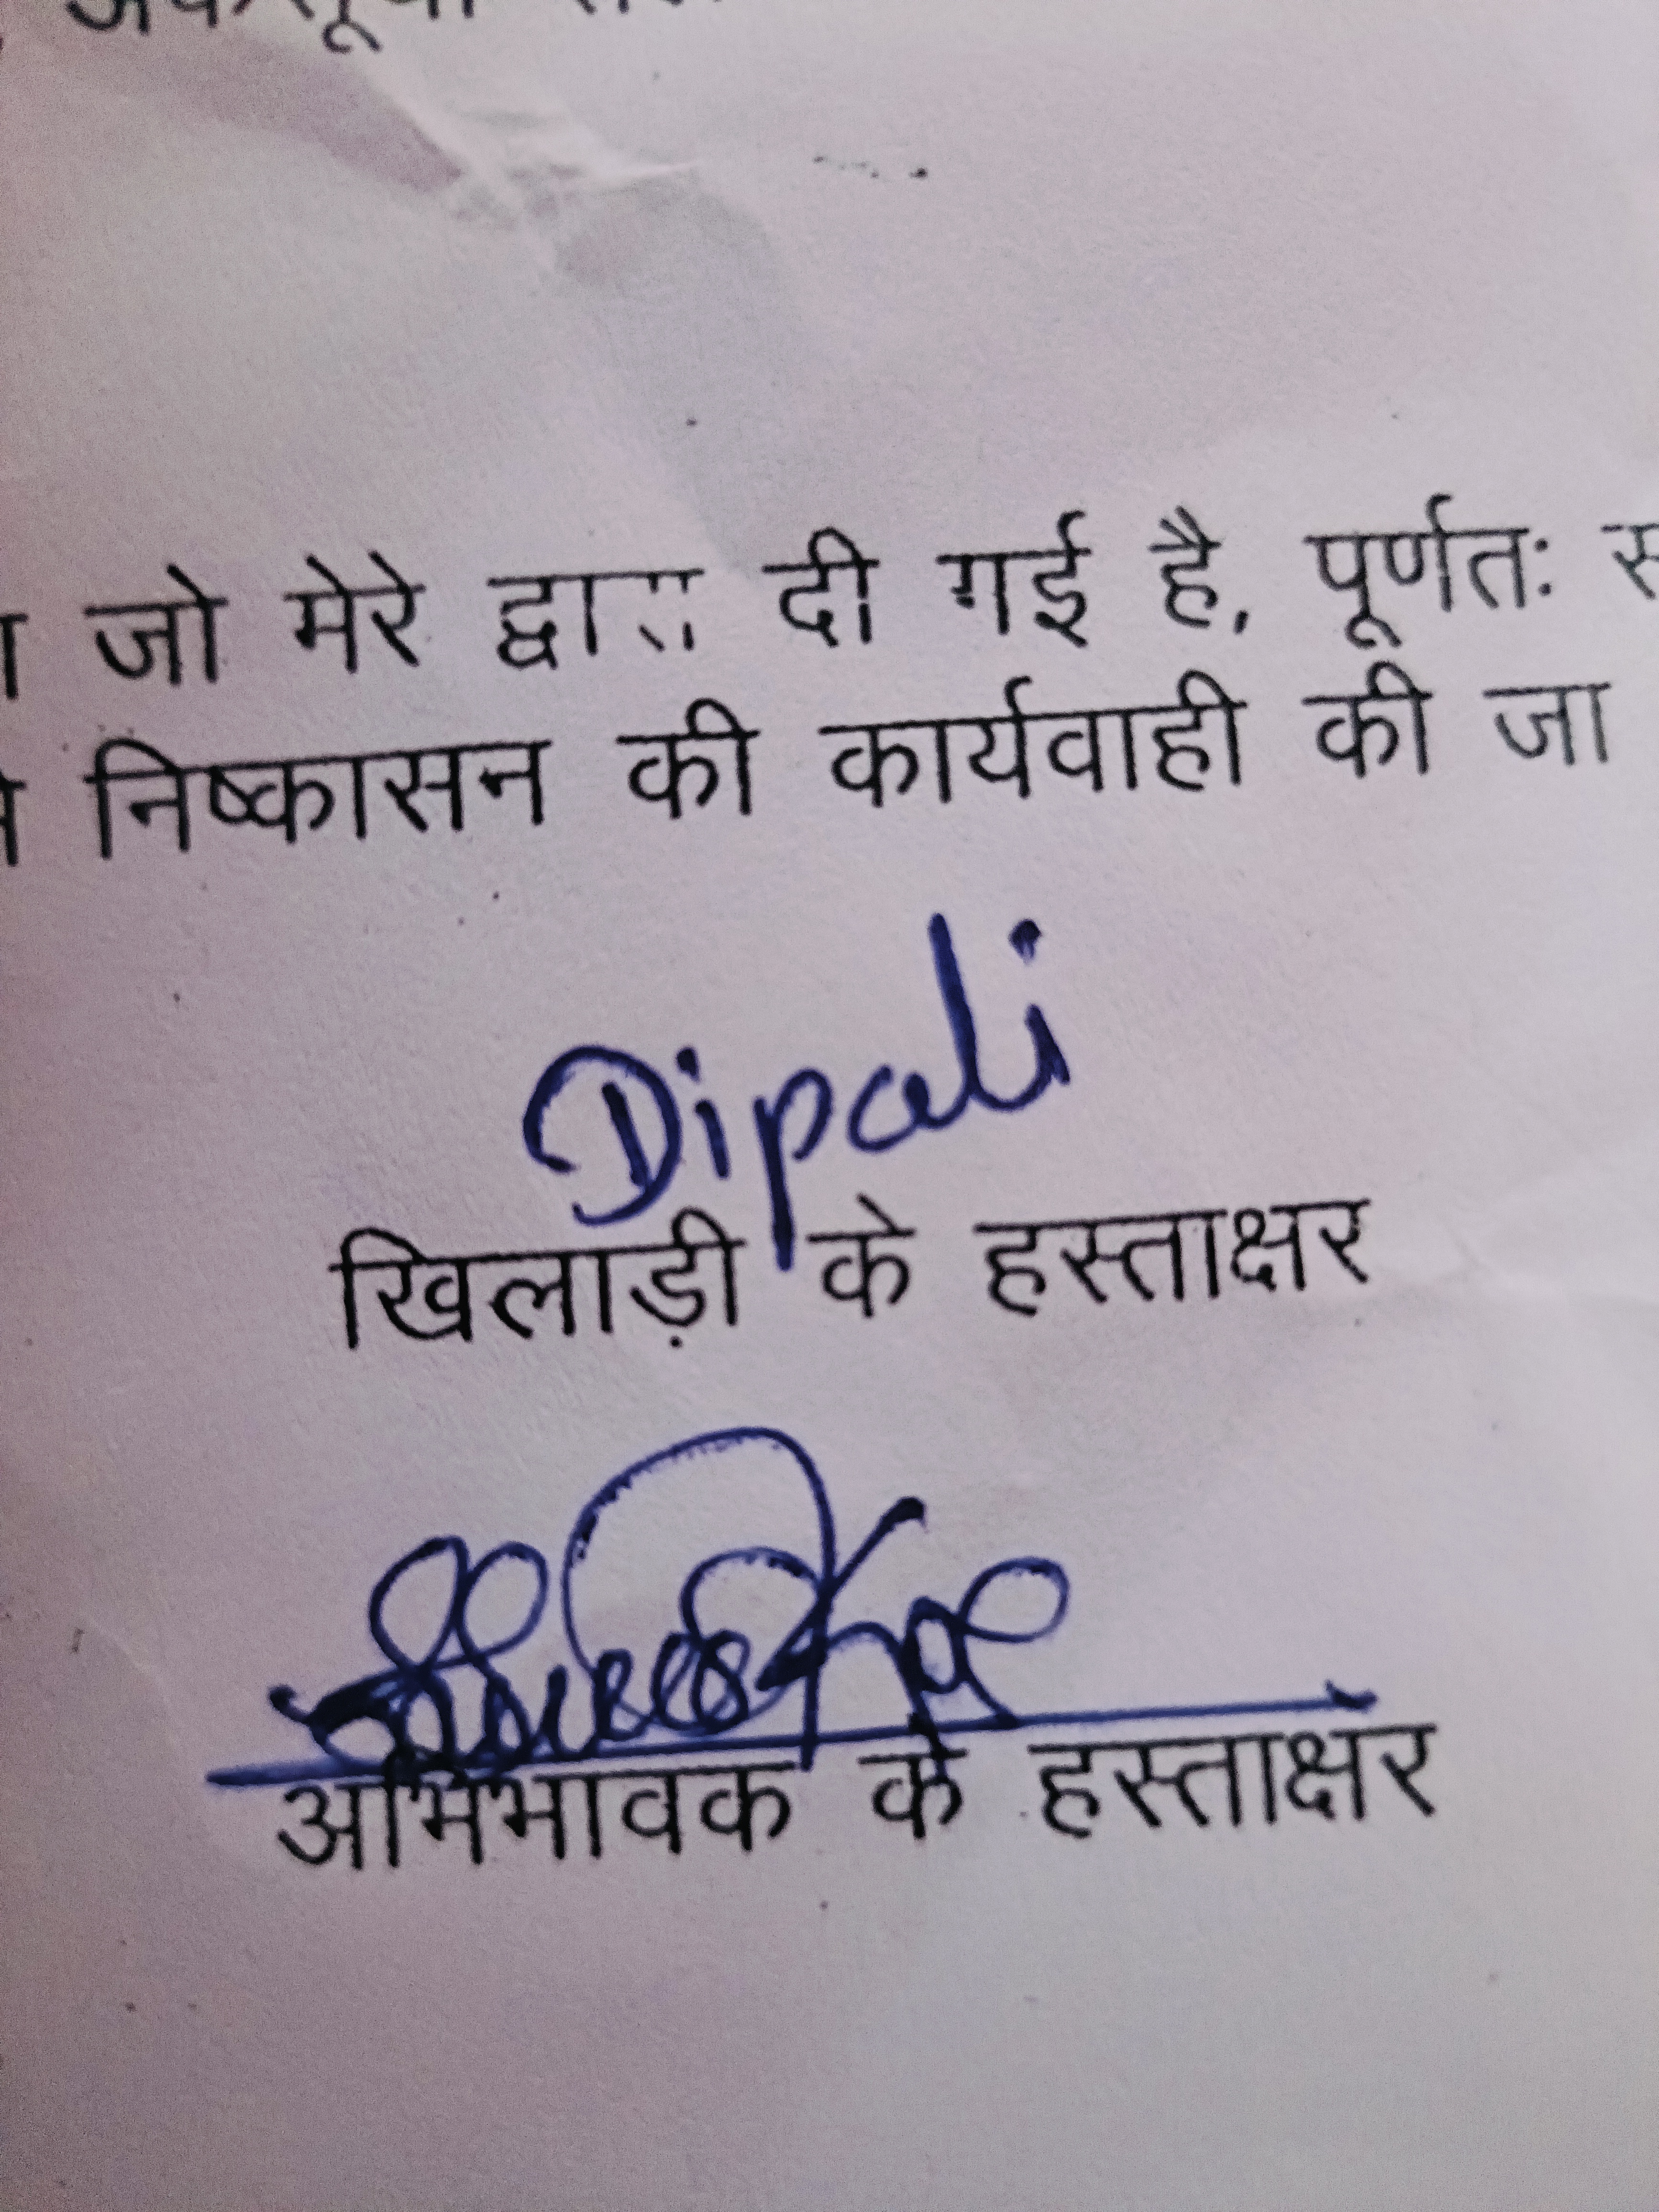 जो मेरे द्वारा दी गई है, पूर्णतः
निष्कासन की कार्यवाही की जा
Dipali
खिलाड़ी के हस्ताक्षर
अभिभावक के हस्ताक्षर